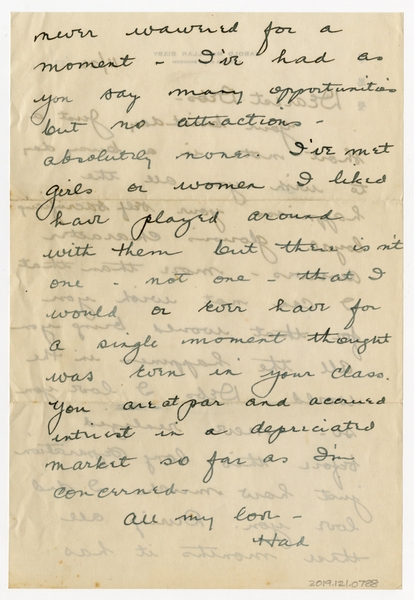 never wavered for a
moment - I've had as
you say many opportunities
but no attractions -
absolutely none. I've met
girls or women I liked
have played around
with them but there isn't
one - not one - that I
would or ever have for
a single moment thought
was even in your class.
You are at par and accrued
intrest in a depreciated
market so far as I'm
concerned -
All my love -
Had
2019.121.0788